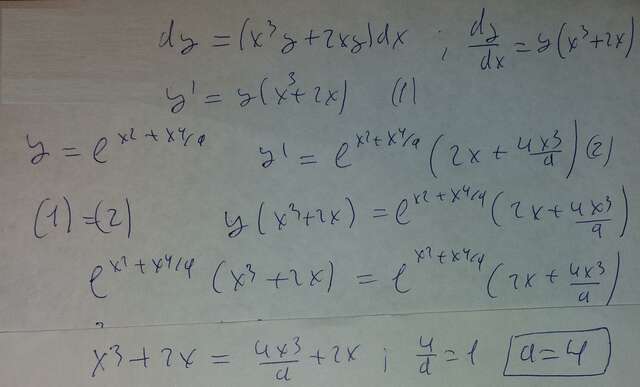 dy = (x³y + 2xy)dx ; dy/dx = y(x³+2x)
y' = y(x³+2x) (1)
y = e^(x²+x⁴/a) y' = e^(x²+x⁴/a) (2x + 4x³/a) (2)
(1)=(2) y(x³+2x) = e^(x²+x⁴/a) (2x + 4x³/a)
e^(x²+x⁴/a) (x³+2x) = e^(x²+x⁴/a) (2x + 4x³/a)
x³+2x = 4x³/a + 2x ; 4/a = 1 a=4